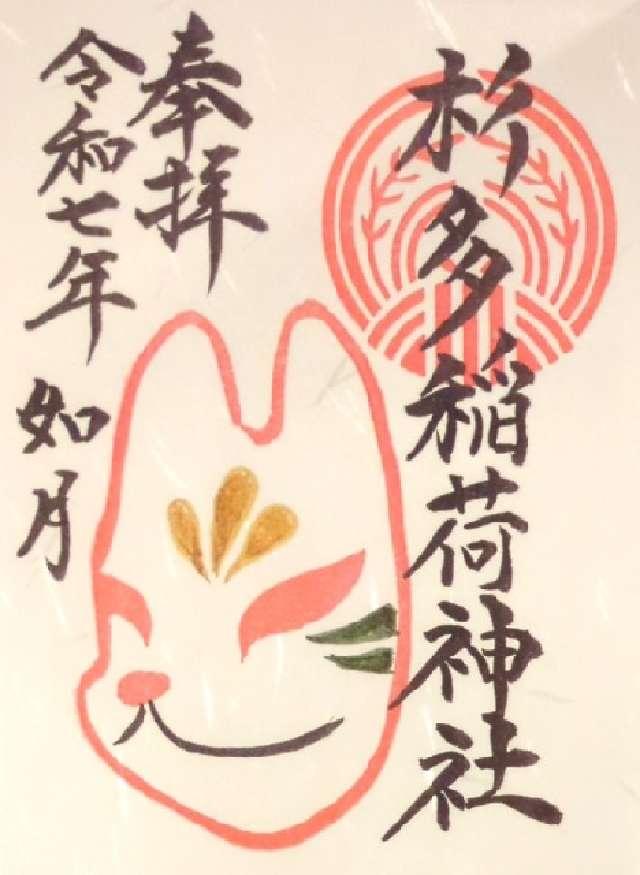 杉多稲荷神社
奉拝
令和七年 如月